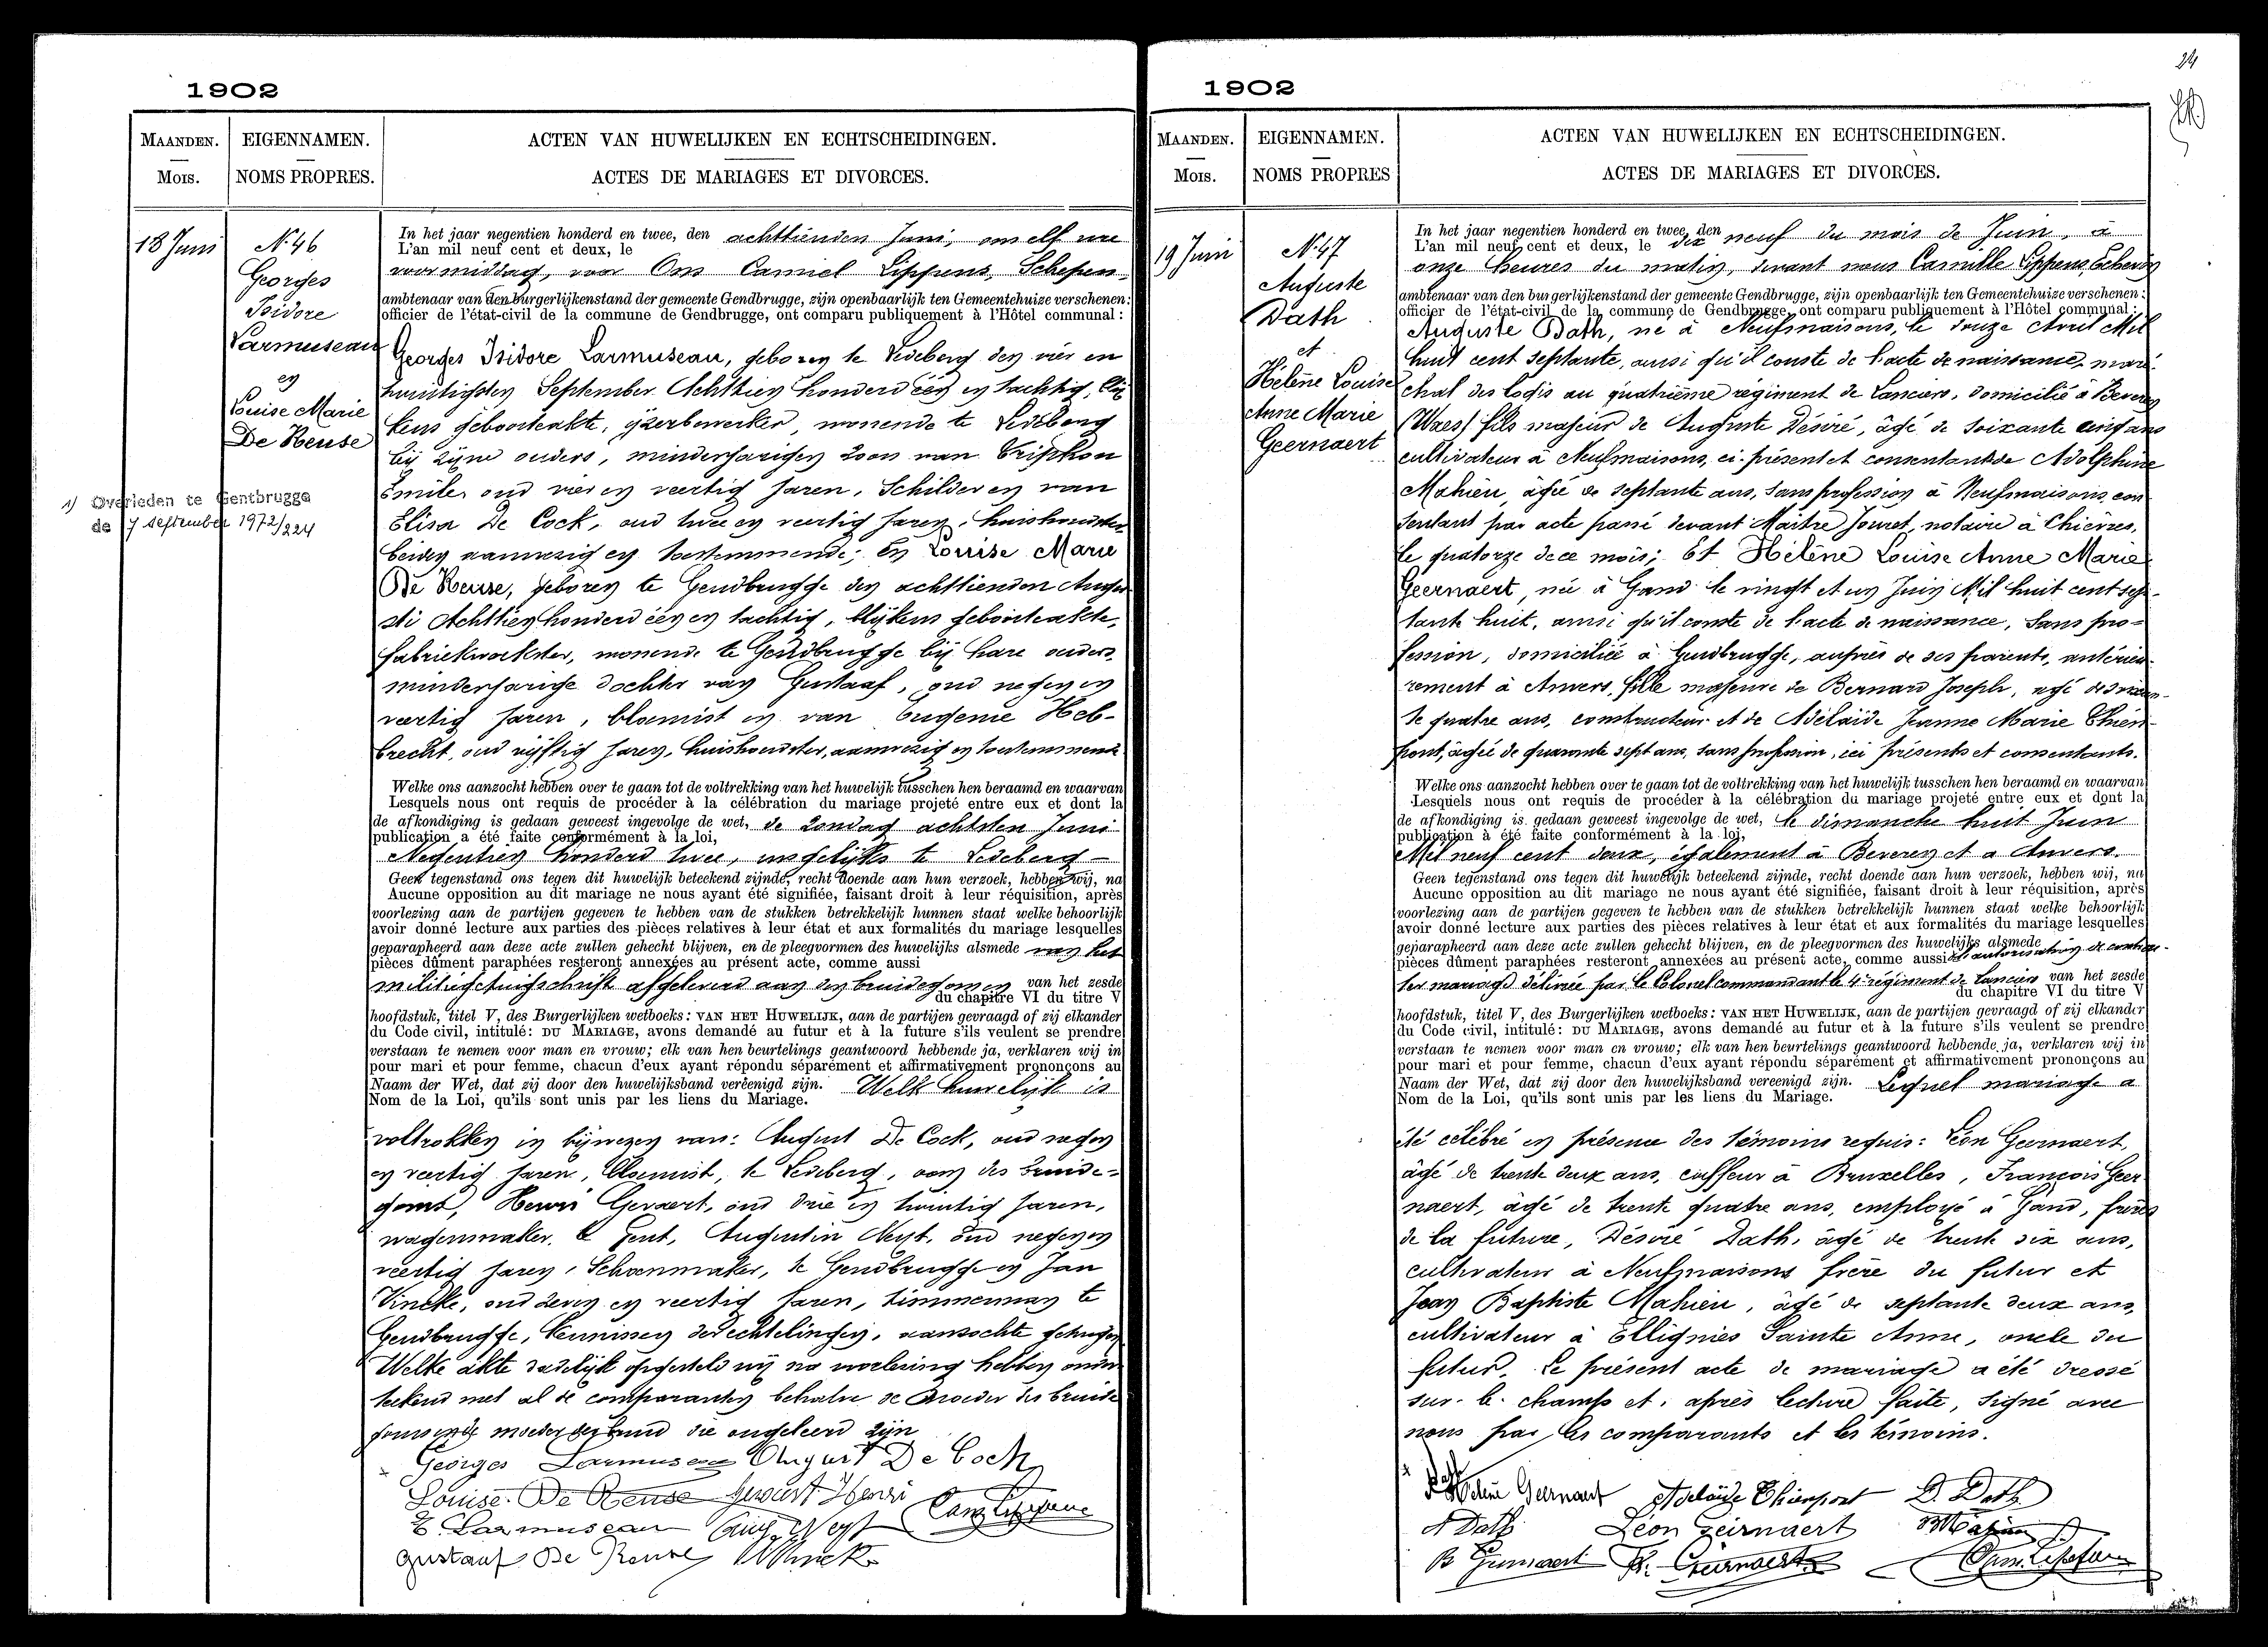 1902
MAANDEN.
Mois.
EIGENNAMEN.
NOMS PROPRES.
ACTEN VAN HUWELIJKEN EN ECHTSCHEIDINGEN.
ACTES DE MARIAGES ET DIVORCES.
18 Juni
N. 46
Georges
Isidore
Larmuseau
en
Louise Marie
De Reuse
1) Overleden te Gentbrugge
de 7 september 1972/224
In het jaar negentien honderd en twee, den achttienden Juni, om elf ure
L'an mil neuf cent et deux, le
voormiddag, voor Ons Camiel Lippens, Schepen
ambtenaar van den burgerlijkenstand der gemeente Gendbrugge, zijn openbaarlijk ten Gemeentehuize verschenen:
officier de l'état-civil de la commune de Gendbrugge, ont comparu publiquement à l'Hôtel communal:
Georges Isidore Larmuseau, geboren te Ledeberg den vier en
twintigsten September Achttien honderd één en tachtig, blij-
kens geboorteakte, ijzerbewerker, wonende te Ledeberg
bij zijne ouders, minderjarigen zoon van Triphon
Emile, oud vier en veertig jaren, Schilder en van
Elisa De Cock, oud twee en veertig jaren, huishoudster
beiden aanwezig en toestemmende; En Louise Marie
De Reuse, geboren te Gendbrugge den achttienden Augu-
sti Achttien honderd één en tachtig, blijkens geboorteakte,
fabriekwerkster, wonende te Gendbrugge bij hare ouders,
minderjarige dochter van Gustaaf, oud negen en
veertig jaren, bloemist en van Eugenie Heb-
brecht, oud vijftig jaren, huishoudster, aanwezig en toestemmende
Welke ons aanzocht hebben over te gaan tot de voltrekking van het huwelijk tusschen hen beraamd en waarvan
Lesquels nous ont requis de procéder à la célébration du mariage projeté entre eux et dont la
de afkondiging is gedaan geweest ingevolge de wet, de zondag achtsten Juni
publication a été faite conformément à la loi,
Negentien honderd twee, insgelijks te Ledeberg
Geen tegenstand ons tegen dit huwelijk beteekend zijnde, recht doende aan hun verzoek, hebben wij, na
Aucune opposition au dit mariage ne nous ayant été signifiée, faisant droit à leur réquisition, après
voorlezing aan de partijen gegeven te hebben van de stukken betrekkelijk hunnen staat welke behoorlijk
avoir donné lecture aux parties des pièces relatives à leur état et aux formalités du mariage lesquelles
geparapheerd aan deze acte zullen gehecht blijven, en de pleegvormen des huwelijks alsmede van het
pièces dûment paraphées resteront annexées au présent acte, comme aussi
militiegetuigschrift afgeleverd aan den bruidegom en van het zesde
du chapitre VI du titre V
hoofdstuk, titel V, des Burgerlijken wetboeks: VAN HET HUWELIJK, aan de partijen gevraagd of zij elkander
du Code civil, intitulé: DU MARIAGE, avons demandé au futur et à la future s'ils veulent se prendre
verstaan te nemen voor man en vrouw; elk van hen beurtelings geantwoord hebbende ja, verklaren wij in
pour mari et pour femme, chacun d'eux ayant répondu séparément et affirmativement prononçons au
Naam der Wet, dat zij door den huwelijksband vereenigd zijn. Welk huwelijk is
Nom de la Loi, qu'ils sont unis par les liens du Mariage.
voltrokken in bijwezen van: August De Cock, oud negen
en veertig jaren, bloemist, te Ledeberg, oom des bruide-
goms, Henri Gevaert, oud drie en twintig jaren,
wagenmaker, te Gent, Augustin Neyt, oud negen en
veertig jaren, Schoenmaker, te Gendbrugge en Jan
Vincke, oud zeven en veertig jaren, timmerman te
Gendbrugge, kennissen der echtelingen, aanzochte getuigen
Welke akte dadelijk opgesteld wij na voorlezing hebben onder-
teekend met al de comparanten behalve de moeder des bruide-
goms en de moeder der bruid die ongeleerd zijn
Georges Larmuseau August De Cock
Louise De Reuse Gevaert Henri
E. Larmuseau Aug. Neyt Cam Lippens
Gustaaf De Reuse
1902
24
MAANDEN.
Mois.
EIGENNAMEN.
NOMS PROPRES
ACTEN VAN HUWELIJKEN EN ECHTSCHEIDINGEN.
ACTES DE MARIAGES ET DIVORCES.
19 Juin
N. 47
Auguste
Dath
et
Hélène Louise
Anne Marie
Geernaert
In het jaar negentien honderd en twee, den
L'an mil neuf cent et deux, le dix neuf du mois de Juin, à
onze heures du matin, devant nous Camille Lippens, Echevin
ambtenaar van den burgerlijkenstand der gemeente Gendbrugge, zijn openbaarlijk ten Gemeentehuize verschenen:
officier de l'état-civil de la commune de Gendbrugge, ont comparu publiquement à l'Hôtel communal:
Auguste Dath, né à Neufmaisons, le douze Avril Mil
huit cent septante, ainsi qu'il conste de l'acte de naissance, maré-
chal des logis au quatrième régiment de Lanciers, domicilié à Beveren
(Waes) fils majeur de Auguste Désiré, âgé de soixante cinq ans
cultivateur à Neufmaisons, ci-présent et consentant et de Adolphine
Mahieu, âgée de septante ans, sans profession à Neufmaisons, con-
sentant par acte passé devant Maître Jouret, notaire à Chièvres,
le quatorze de ce mois; Et Hélène Louise Anne Marie
Geernaert, née à Gand le vingt et un Juin Mil huit cent sep-
tante huit, ainsi qu'il conste de l'acte de naissance, sans pro-
fession, domiciliée à Gendbrugge, auprès de ses parents, antérieu-
rement à Anvers, fille majeure de Bernard Joseph, âgé de soixan-
te quatre ans, constructeur et de Adélaïde Jeanne Marie Thien-
pont, âgée de quarante sept ans, sans profession, ici présents et consentants.
Welke ons aanzocht hebben over te gaan tot de voltrekking van het huwelijk tusschen hen beraamd en waarvan
Lesquels nous ont requis de procéder à la célébration du mariage projeté entre eux et dont la
de afkondiging is gedaan geweest ingevolge de wet, le dimanche huit Juin
publication à été faite conformément à la loi,
Mil neuf cent deux, également à Beveren et a Anvers.
Geen tegenstand ons tegen dit huwelijk beteekend zijnde, recht doende aan hun verzoek, hebben wij, na
Aucune opposition au dit mariage ne nous ayant été signifiée, faisant droit à leur réquisition, après
voorlezing aan de partijen gegeven te hebben van de stukken betrekkelijk hunnen staat welke behoorlijk
avoir donné lecture aux parties des pièces relatives à leur état et aux formalités du mariage lesquelles
geparapheerd aan deze acte zullen gehecht blijven, en de pleegvormen des huwelijks alsmede
pièces dûment paraphées resteront annexées au présent acte, comme aussi de l'autorisation de contrac-
ter mariage délivrée par le Colonel commandant le 4e régiment de Lanciers van het zesde
du chapitre VI du titre V
hoofdstuk, titel V, des Burgerlijken wetboeks: VAN HET HUWELIJK, aan de partijen gevraagd of zij elkander
du Code civil, intitulé: DU MARIAGE, avons demandé au futur et à la future s'ils veulent se prendre
verstaan te nemen voor man en vrouw; elk van hen beurtelings geantwoord hebbende ja, verklaren wij in
pour mari et pour femme, chacun d'eux ayant répondu séparément et affirmativement prononçons au
Naam der Wet, dat zij door den huwelijksband vereenigd zijn. Lequel mariage a
Nom de la Loi, qu'ils sont unis par les liens du Mariage.
été célébré en présence des témoins requis: Léon Geernaert,
âgé de trente deux ans, coiffeur à Bruxelles, François Geer-
naert, âgé de trente quatre ans, employé à Gand, frères
de la future, Désiré Dath, âgé de trente six ans,
cultivateur à Neufmaisons frère du futur et
Jean Baptiste Mahieu, âgé de septante deux ans,
cultivateur à Ellignies Sainte Anne, oncle du
futur. Le présent acte de mariage a été dressé
sur-le-champ et, après lecture faite, signé avec
nous par les comparants et les témoins.
Dath
Hélène Geernaert Adelaïde Thienpont D. Dath
A Dath Léon Geernaert Mahieu
B Geernaert Fr. Geernaert Cam. Lippens